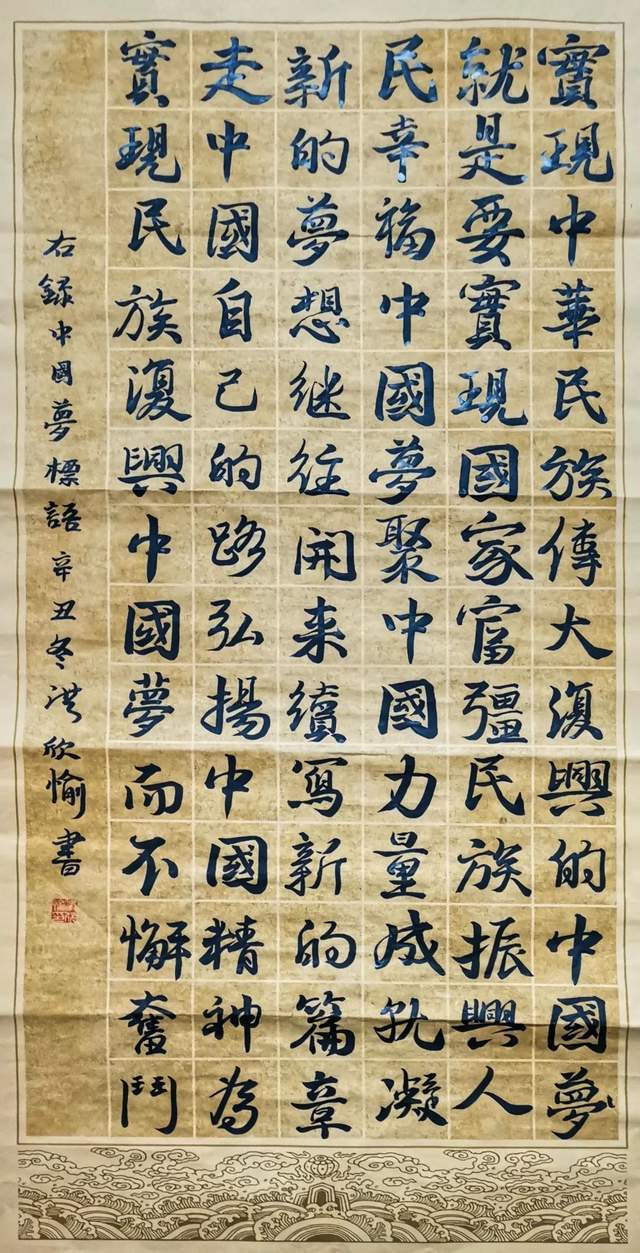 實現中華民族偉大復興的中國夢
就是要實現國家富彊民族振興人
民幸福中國夢聚中國力量成就凝
新的夢想継往開来續寫新的篇章
走中國自己的路弘揚中國精神為
實現民族復興中國夢而不懈奮鬥
右録中国夢標語辛丑冬洪欣愉書